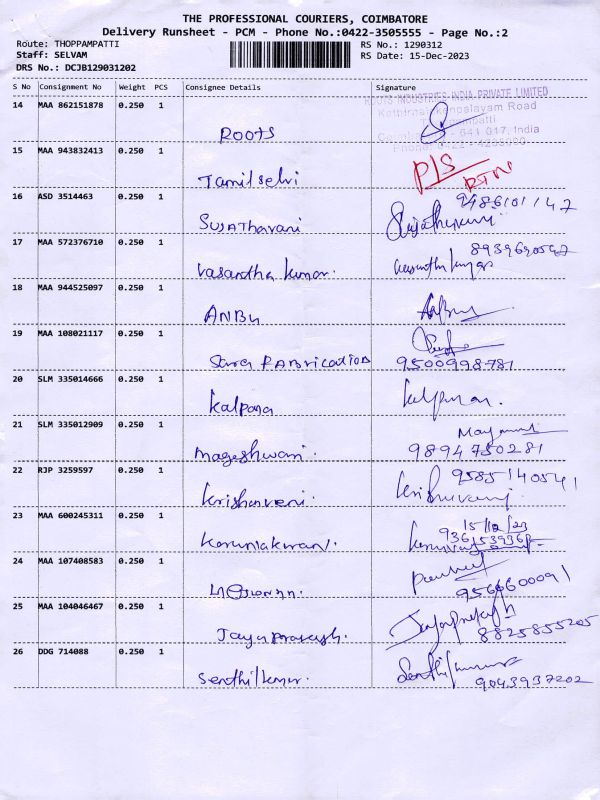 THE PROFESSIONAL COURIERS, COIMBATORE
Delivery Runsheet - PCM - Phone No.:0422-3505555 - Page No.:2
Route: THOPPAMPATTI
RS No.: 1290312
Staff: SELVAM
RS Date: 15-Dec-2023
DRS No.: DCJB129031202
S No Consignment No Weight PCS Consignee Details Signature
ROOTS INDUSTRIES INDIA PRIVATE LIMITED
14 MAA 862151878 0.250 1
641 017, India
ROOTS
15 MAA 943832413 0.250 1
P/S
RTN
Tamilselvi
16 ASD 3514463 0.250 1
9486101147
Sujathavani
17 MAA 572376710 0.250 1
Vasantha kumar.
18 MAA 944525097 0.250 1
ANBU
19 MAA 108021117 0.250 1
FABrication 9500998781
20 SLM 335014666 0.250 1
kalpana
21 SLM 335012909 0.250 1
Mageshwari 9894750281
22 RJP 3259597 0.250 1
9585140541
krishaveni.
23 MAA 600245311 0.250 1
15/12/23
Karunakaran.
24 MAA 107408583 0.250 1
25 MAA 104046467 0.250 1
Jayaprakash. 8825855205
26 DDG 714088 0.250 1
Senthilkumar. 9043937202